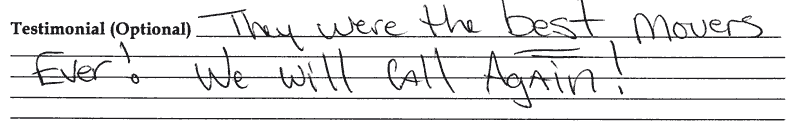 Testimonial (Optional) They were the best movers
Ever! We will call Again!